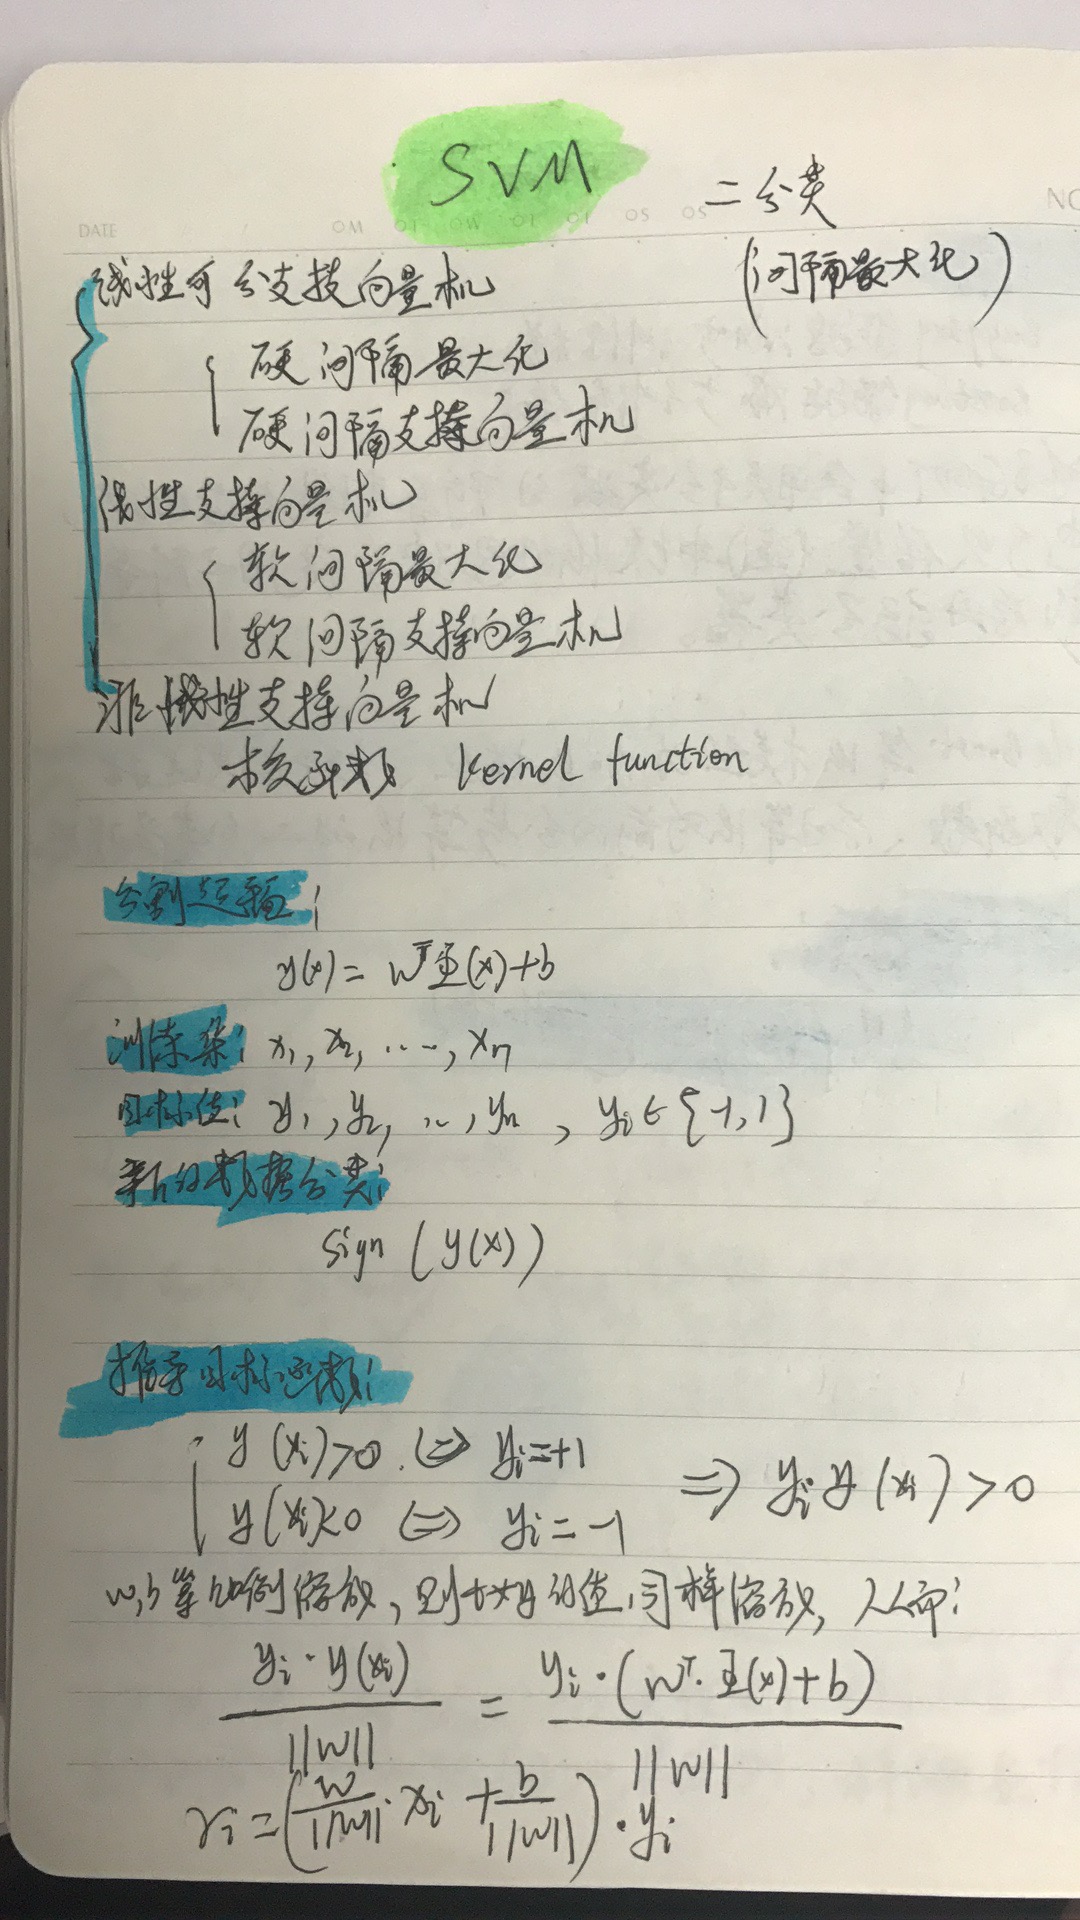 SVM
二分类
(间隔最大化)
DATE
NO
线性可分支持向量机
硬间隔最大化
硬间隔支持向量机
线性支持向量机
软间隔最大化
软间隔支持向量机
非线性支持向量机
核函数 Kernel function
分割超平面:
y(x) = wᵀΦ(x)+b
训练集: x₁, x₂, ..., xₙ
目标值: y₁, y₂, .., yₙ , yᵢ∈{-1,1}
新的数据分类:
Sign (y(x))
推导目标函数:
y(xᵢ)>0 ⇔ yᵢ=+1
y(xᵢ)<0 ⇔ yᵢ=-1 ⇒ yᵢy(xᵢ)>0
w,b等比例缩放, 则 的值同样缩放, 从而:
yᵢ·y(xᵢ) / ||w|| = yᵢ·(wᵀ·Φ(x)+b) / ||w||
rᵢ=(w/||w||·xᵢ + b/||w||)·yᵢ